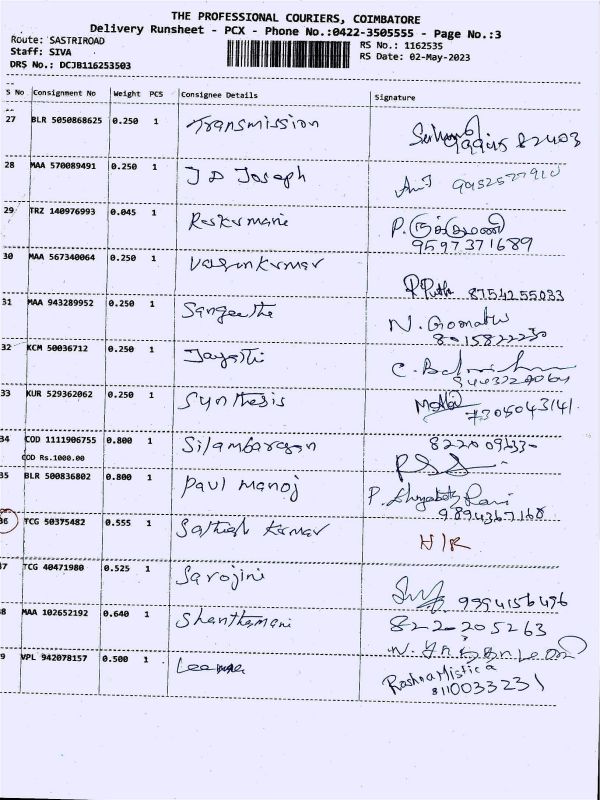 THE PROFESSIONAL COURIERS, COIMBATORE
Delivery Runsheet - PCX - Phone No.:0422-3505555 - Page No.:3
Route: SASTRIROAD
Staff: SIVA
DRS No.: DCJB116253503
RS No.: 1162535
RS Date: 02-May-2023
S No Consignment No Weight PCS Consignee Details Signature
27 BLR 5050868625 0.250 1 Transmission
82403
28 MAA 570089491 0.250 1 J D Joseph
29 TRZ 140976993 0.045 1
P. ருக்மணி
9597371689
30 MAA 567340064 0.250 1 Vasankumar
8754255033
31 MAA 943289952 0.250 1 Sangeetha
N. Gomathi
8015822230
32 KCM 50036712 0.250 1
33 KUR 529362062 0.250 1 Synthesis
7305043141.
34 COD 1111906755 0.800 1 Silambarasan
COD Rs.1000.00
35 BLR 500836802 0.800 1 Paul Manoj
9894367168
36 TCG 50375482 0.555 1 Sathish Kumar H/R
37 TCG 40471980 0.525 1 Sarojini
9994156496
38 MAA 102652192 0.640 1 Shanthamani
822205263
39 VPL 942078157 0.500 1 Leema
8110033231